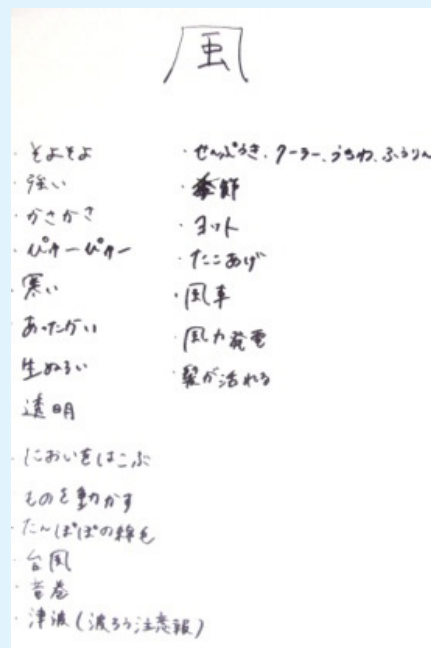 風
・そよそよ
・強い
・かさかさ
・ぴゅーぴゅー
・寒い
・あったかい
生ぬるい
透明
・においをはこぶ
ものを動かす
・たんぽぽの綿毛
・台風
・竜巻
・津波(波ろう注意報)
・せんぷうき、クーラー、うちわ、ふうりん
・季節
・ヨット
・たこあげ
・風車
・風力発電
・髪が